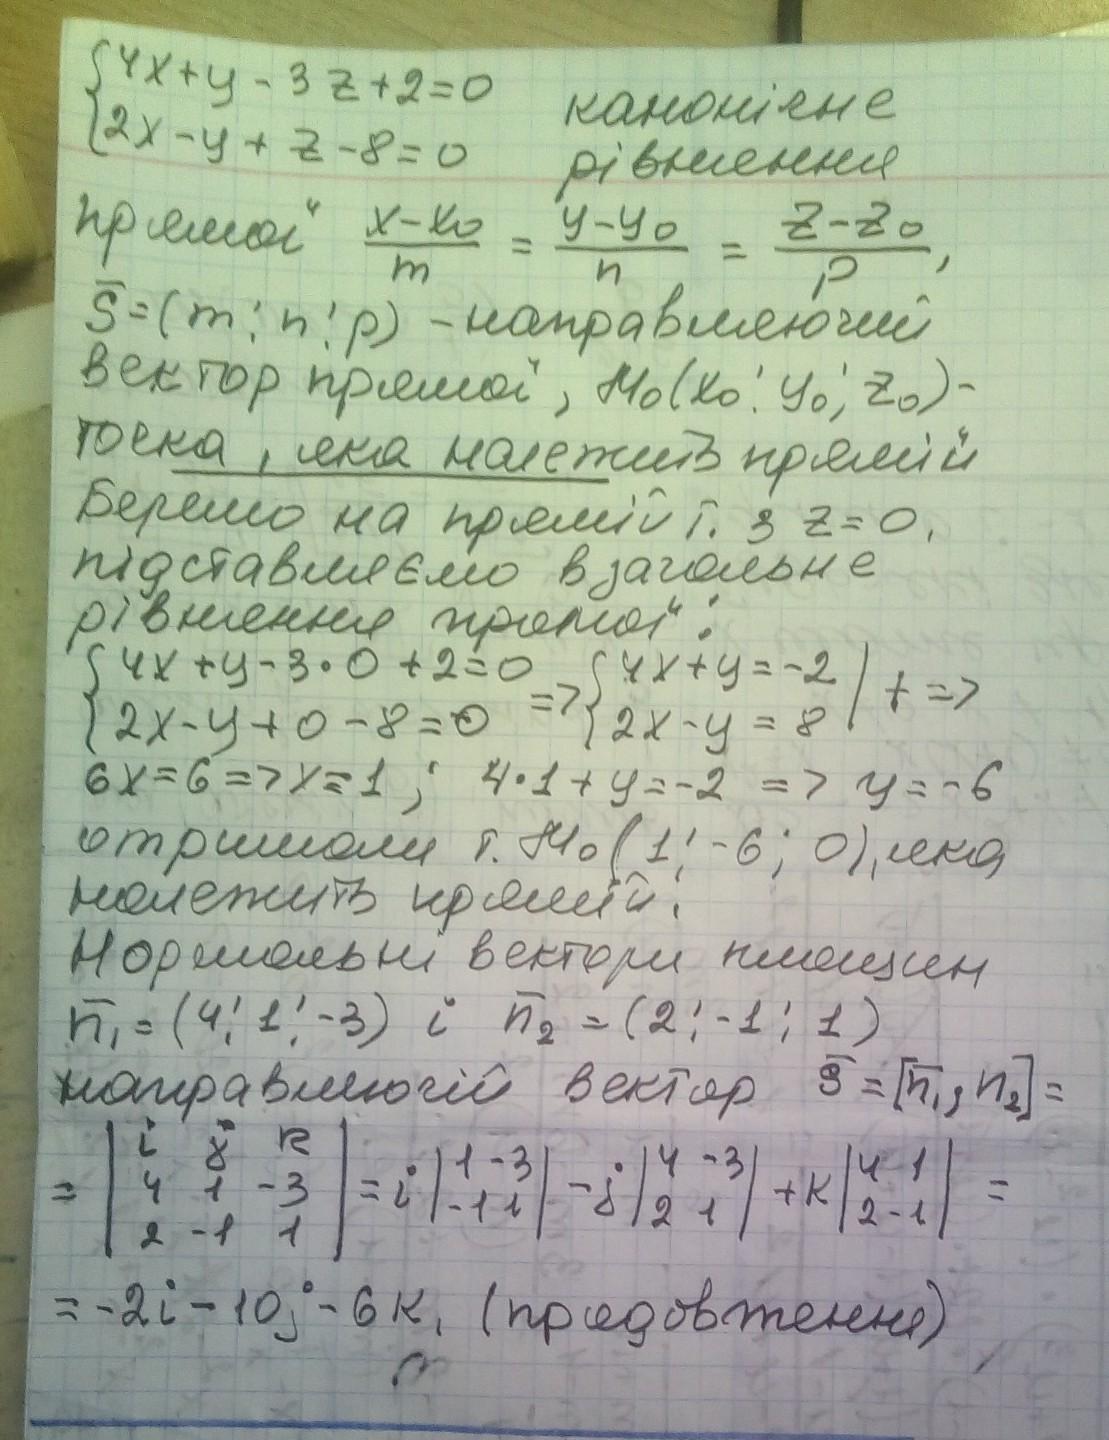 {4x+y-3z+2=0
{2x-y+z-8=0
канонічне
рівняння
прямої (x-x₀)/m = (y-y₀)/n = (z-z₀)/p,
S̄=(m; n; p) - направляючий
вектор прямої, M₀(x₀; y₀; z₀)-
точка, яка належить прямій
Беремо на прямій т. з z=0,
підставляємо в загальне
рівняння прямої:
{4x+y-3·0+2=0 => {4x+y=-2 | + =>
{2x-y+0-8=0 {2x-y=8
6x=6=>x=1; 4·1+y=-2 => y=-6
отримали т. M₀(1; -6; 0), яка
належить прямій.
Нормальні вектори площин
n̄₁=(4; 1; -3) і n̄₂=(2; -1; 1)
направляючій вектор S̄=[n̄₁, n₂]=
= |i j k; 4 1 -3; 2 -1 1| = i|1 -3; -1 1| - j|4 -3; 2 1| + k|4 1; 2 -1| =
= -2i - 10j - 6k, (продовження)